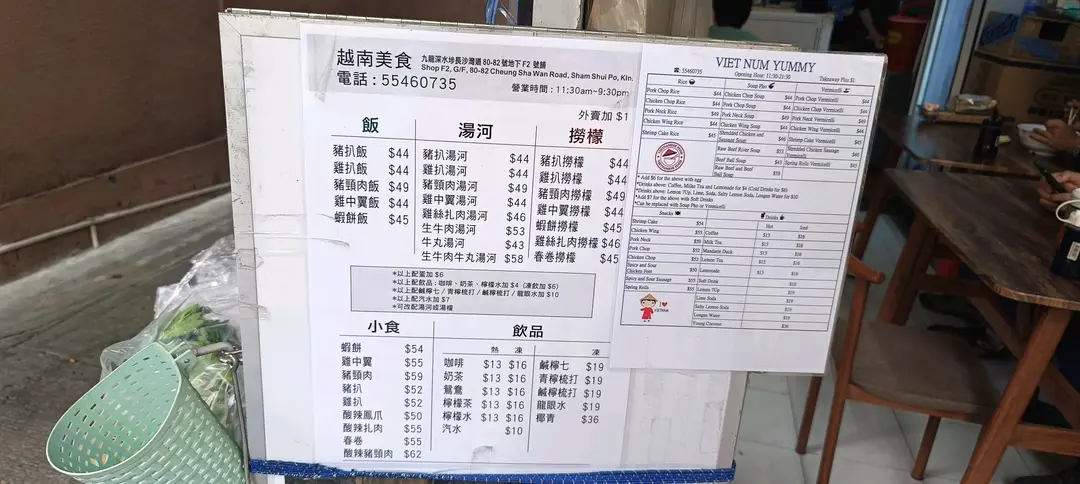 越南美食
九龍深水埗長沙灣道 80-82 號地下 F2 號鋪
Shop F2, G/F, 80-82 Cheung Sha Wan Road, Sham Shui Po, Kln.
電話 : 55460735
營業時間 : 11:30am~9:30pm
外賣加 $1
飯
豬扒飯 $44
雞扒飯 $44
豬頸肉飯 $49
雞中翼飯 $44
蝦餅飯 $45
湯河
豬扒湯河 $44
雞扒湯河 $44
豬頸肉湯河 $49
雞中翼湯河 $44
雞絲扎肉湯河 $46
生牛肉湯河 $53
牛丸湯河 $43
生牛肉牛丸湯河 $58
撈檬
豬扒撈檬 $44
雞扒撈檬 $44
豬頸肉撈檬 $49
雞中翼撈檬 $44
蝦餅撈檬 $45
雞絲扎肉撈檬 $46
春卷撈檬 $45
*以上配蛋加 $6
*以上配飲品 : 咖啡、奶茶、檸檬水加 $4 (凍飲加 $6)
*以上配鹹檸七 / 青檸梳打 / 鹹檸梳打 / 龍眼水加 $10
*以上配汽水加 $7
*可改配湯河或湯檬
小食
蝦餅 $54
雞中翼 $55
豬頸肉 $59
豬扒 $52
雞扒 $52
酸辣鳳爪 $50
酸辣扎肉 $55
春卷 $55
酸辣豬頸肉 $62
飲品
熱 凍
咖啡 $13 $16
奶茶 $13 $16
鴛鴦 $13 $16
檸檬茶 $13 $16
檸檬水 $13 $16
汽水 $10
凍
鹹檸七 $19
青檸梳打 $19
鹹檸梳打 $19
龍眼水 $19
椰青 $36
VIET NUM YUMMY
☎: 55460735
Opening Hour: 11:30-21:30
Takeaway Plus $1
Rice
Pork Chop Rice $44
Chicken Chop Rice $44
Pork Neck Rice $49
Chicken Wing Rice $44
Shrimp Cake Rice $45
Soup Pho
Chicken Chop Soup $44
Pork Chop Soup $44
Pork Neck Soup $49
Chicken Wing Soup $44
Shredded Chicken and Sausage Soup $46
Raw Beef River Soup $53
Beef Ball Soup $43
Raw Beef and Beef Ball Soup $58
Vermicelli
Pork Chop Vermicelli $44
Chicken Chop Vermicelli $44
Pork Neck Vermicelli $49
Chicken Wing Vermicelli $44
Shrimp Cake Vermicelli $45
Shredded Chicken Sausage Vermicelli $46
Spring Rolls Vermicelli $45
* Add $6 for the above with egg
*Drinks above: Coffee, Milke Tea and Lemonade for $4 (Cold Drinks for $6)
*Drinks above: Lemon 7Up, Lime, Soda, Salty Lemon Soda, Longan Water for $10
*Add $7 for the above with Soft Drinks
*Can be replaced with Soup Pho or Vermicelli
Snacks
Shrimp Cake $54
Chicken Wing $55
Pork Neck $59
Pork Chop $52
Chicken Chop $52
Spicy and Sour Chicken Feet $50
Spicy and Sour Sausage $55
Spring Rolls $55
Drinks
Hot Iced
Coffee $13 $16
Milk Tea $13 $16
Mandarin Duck $13 $16
Lemon Tea $13 $16
Lemonade $13 $16
Soft Drink $10
Lemon 7Up $19
Lime Soda $19
Salty Lemon Soda $19
Longan Water $19
Young Coconut $36
I ❤
VIETNAM